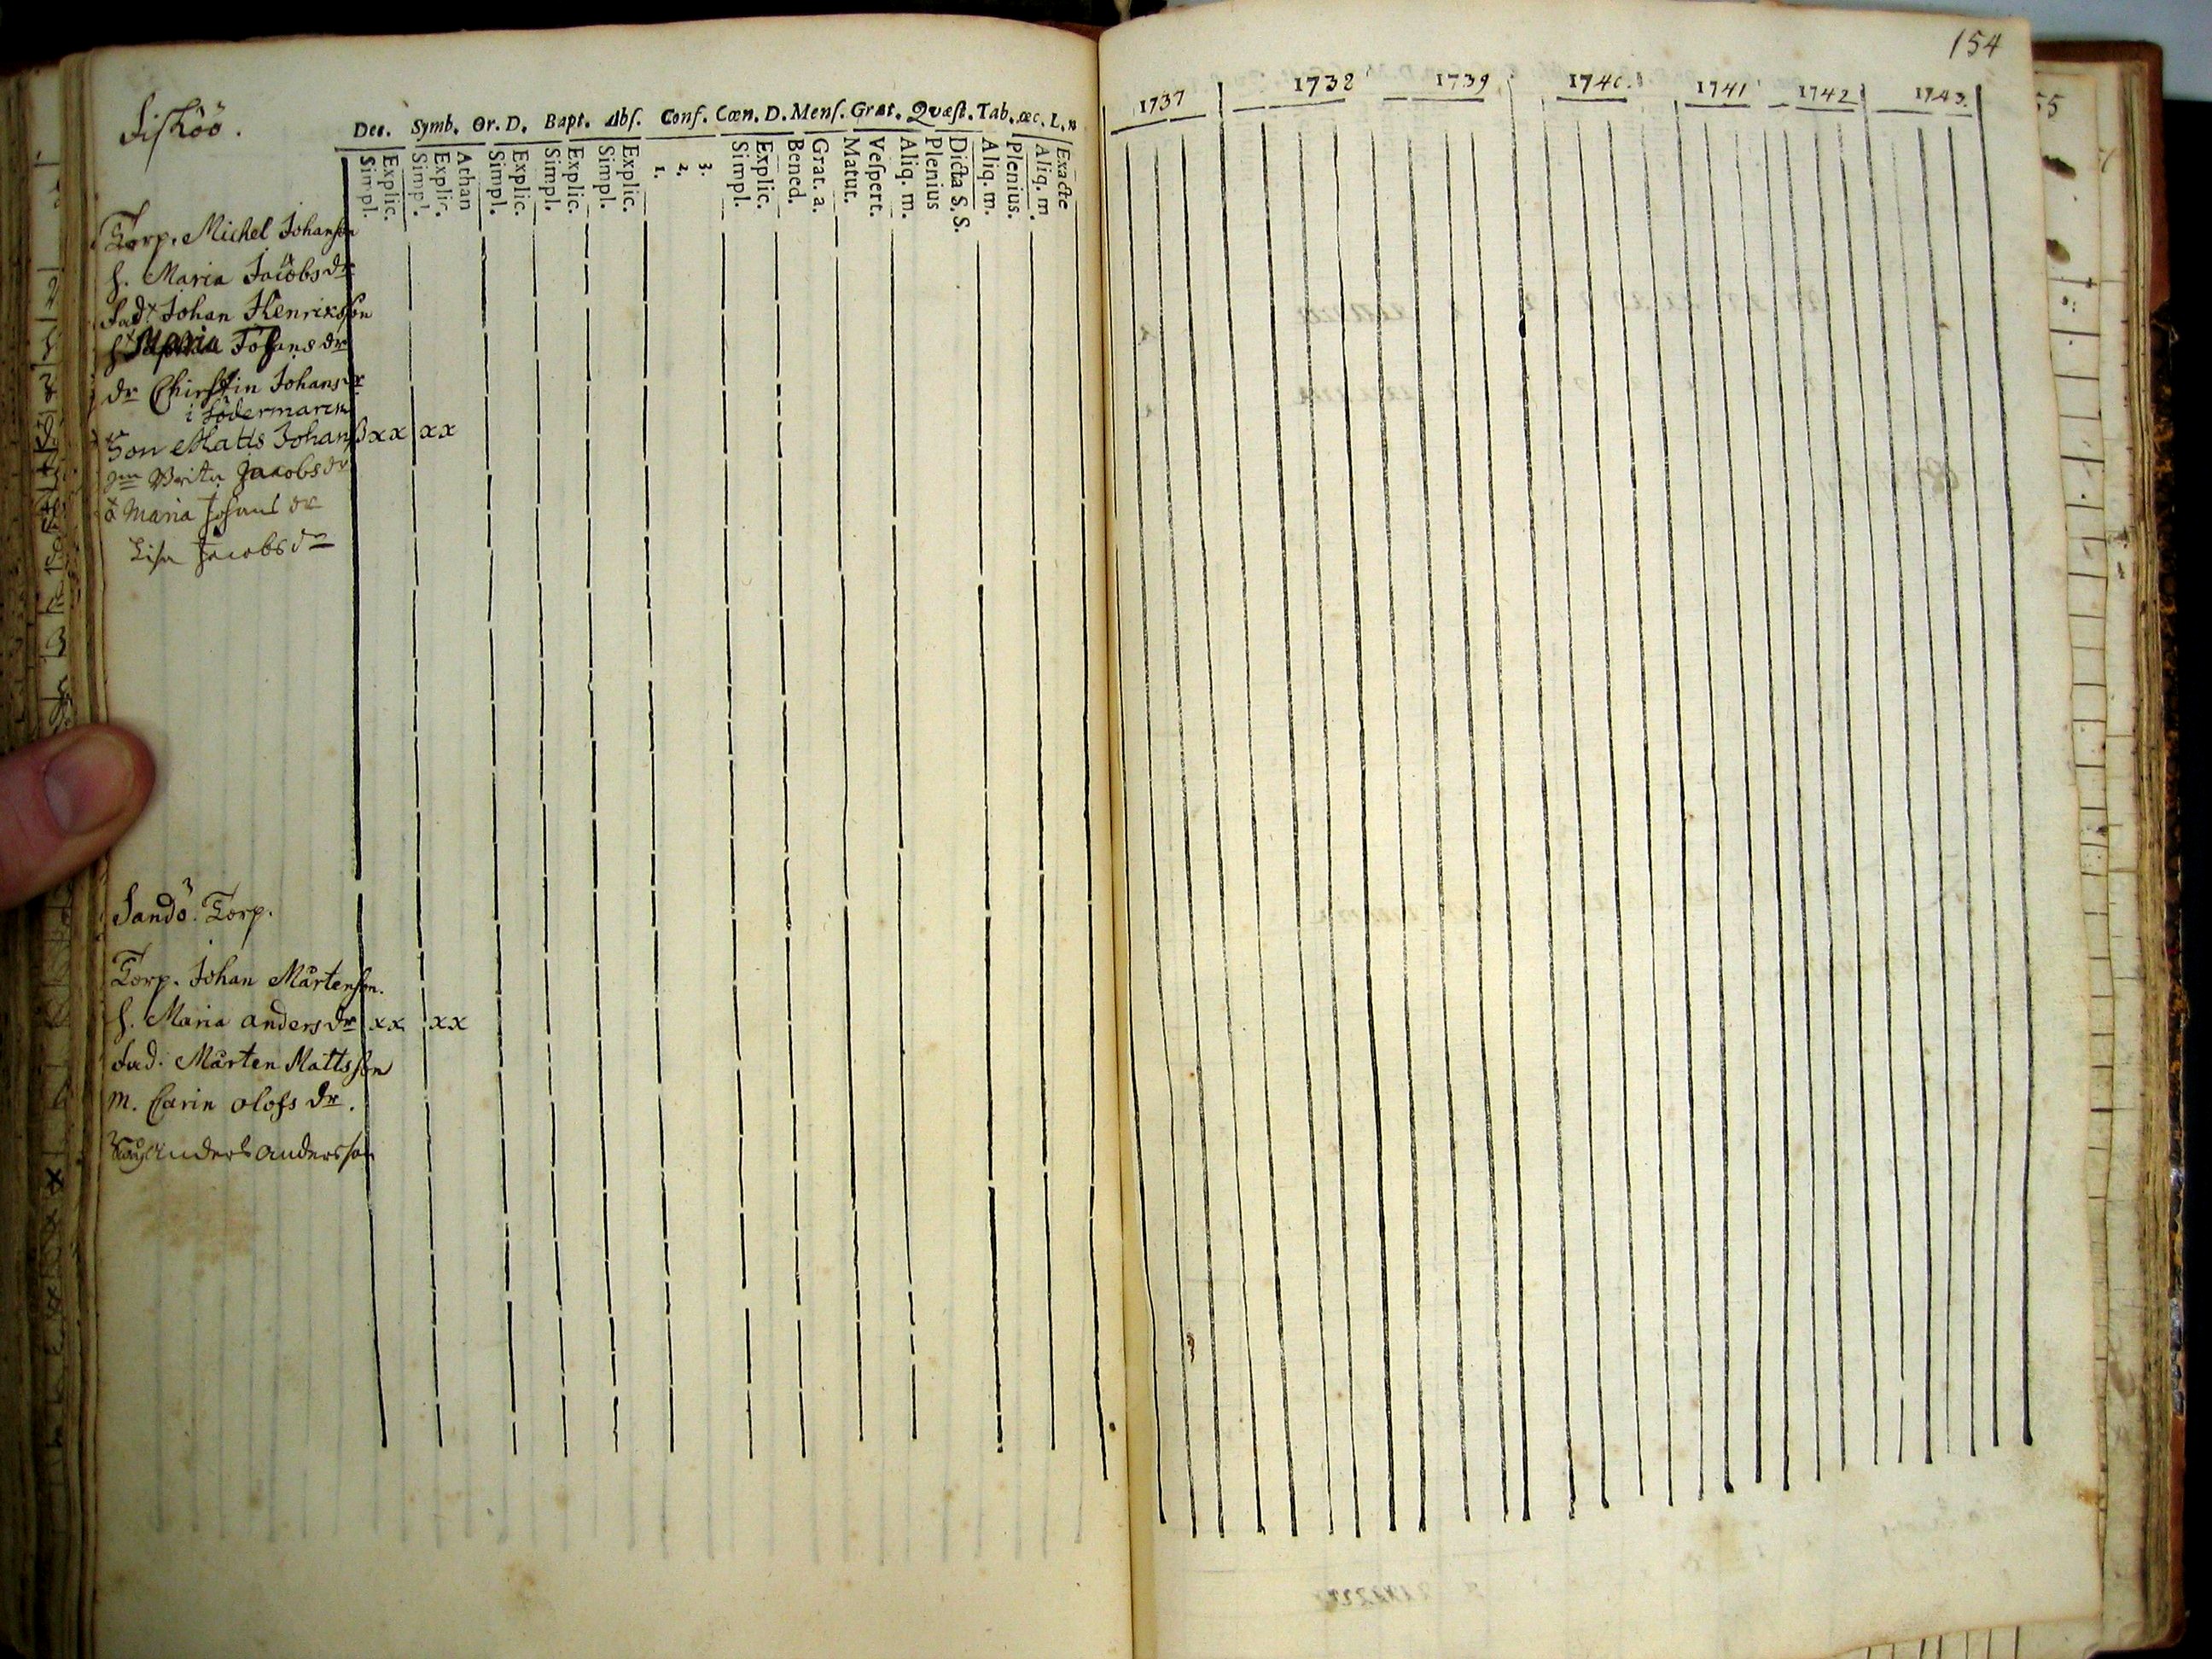 Fisköö.
Dec. Symb. Or. D. Bapt. Abs. Conf. Cœn. D. Mens. Grat. Quæst. Tab. œc. L.
Simpl. Explic. Simpl. Explic. Athan Simpl. Explic. Simpl. Explic. Simpl. Explic. 1. 2. 3. Simpl. Explic. Bened. Grat. a. Matut. Vespert. Aliq. m. Plenius Dicta S. S. Aliq. m. Plenius. Aliq. m. Exacte
Torp. Michel Johanson
h. Maria Jacobs dr
fad. Johan Henriksson
h Maria Johans dr
dr Chirstin Johans dr
i Södermarck
Son Matts Johans xx xx
Brita Jacobs dr
Maria Johans dr
Lisa Jacobs dr
Sandö. Torp.
Torp. Johan Mårtenson.
h. Maria anders dr xx xx
fad. Mårten Mattsson
m. Carin olofs dr.
Anders Andersson
154
1737 1738 1739 1740. 1741 1742 1743.
55